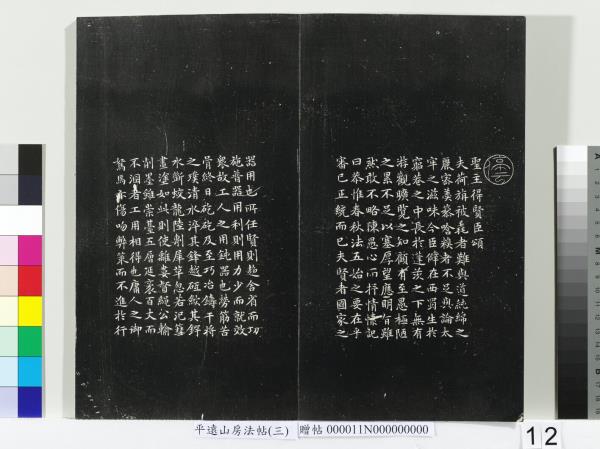 聖主得賢臣頌
夫荷旃被毳者難與道純綿之
麗密羹藜唅糗者不足與論太
牢之滋味今臣僻在西蜀生於
窮巷之中長於蓬茨之下無有
游觀曠覽之知顧有至愚極陋
之累不足以塞厚望應明旨雖
然敢不略陳愚心而抒情愫記
曰恭惟春秋法五始之要在乎
審己正統而已夫賢者國家之
器用也所任賢則趨舍省而功
施普器用利則用力少而就效
衆故工人之用鈍器也勞筋苦
骨終日矻矻及至巧冶鑄干將
之璞清水淬其鋒越砥斂其鍔
水斷蛟龍陸剸犀革忽若汜篲
畫塗如此則使離婁督繩公輸
削墨雖崇臺五層延袤百丈而
不溷者工用相得也庸人之御
駑馬亦傷吻弊策而不進於行
平遠山房法帖(三) 贈帖 000011N000000000
12